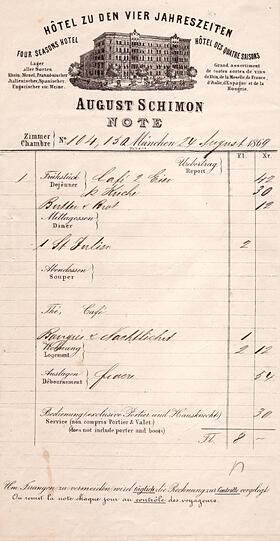 HÔTEL ZU DEN VIER JAHRESZEITEN
FOUR SEASONS HOTEL
HÔTEL DES QUATRE SAISONS
Lager
aller Sorten
Rhein, Mosel, Französischer
Italienischer, Spanischer
Ungarischer etc. Weine.
Grand assortiment
de toutes sortes de vins
du Rhin, de la Moselle de France,
d'Italie, d'Espagne et de la
Hongrie.
AUGUST SCHIMON
NOTE
Zimmer
Chambre
No 104, 150 München 24 August 1869
Uebertrag
Report
Fl. Xr.
1 Frühstück Café 2 Eier 42
Dejeuner 30
Butter & Brot 12
Mittagessen
Diner
1 St Julien 2
Abendessen
Souper
Thé, Café
Bougies & Nachtlicht 1
Wohnung
Logement 2 12
Auslagen
Débourrsement fiacre 54
Bedienung (exclusive Portier und Hausknecht) 30
Service (non compris Portier & Valet)
(does not include porter and boots)
Fl. 8 —
Um Irrungen zu vermeiden wird täglich die Rechnung zur Controlle vorgelegt
On remet la note chaque jour au contrôle des voyageurs.